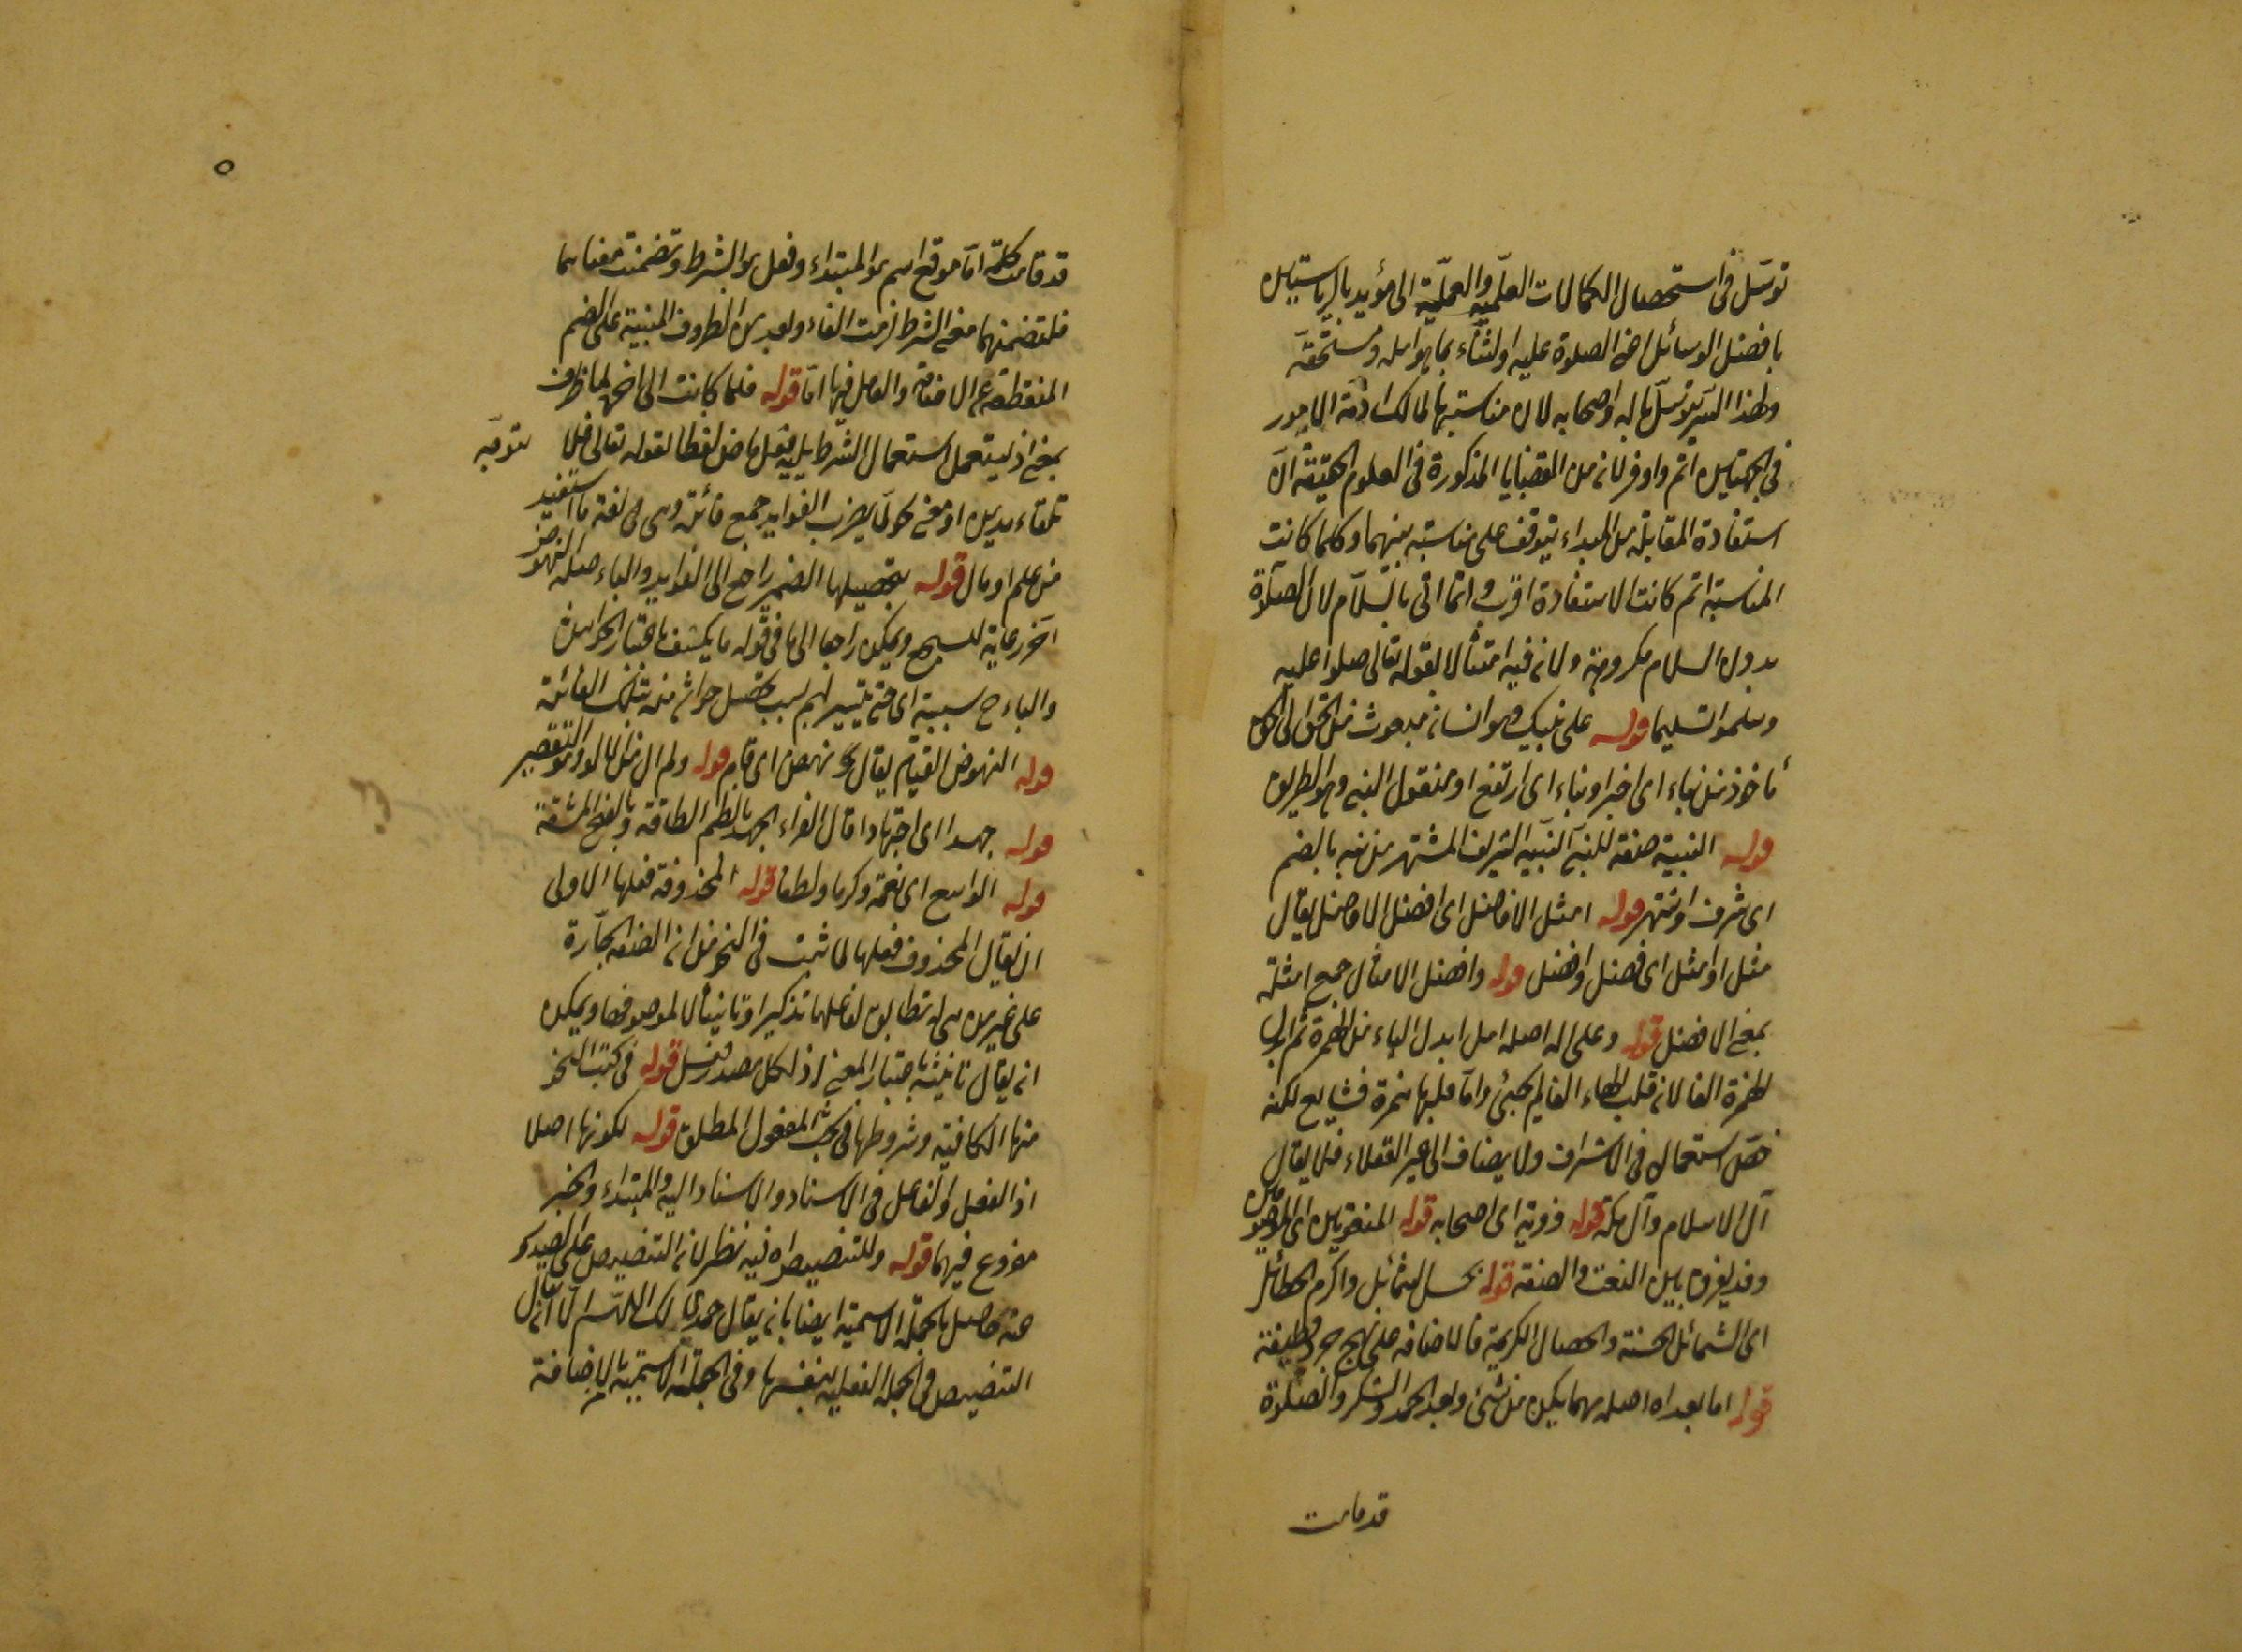 توسل فى استحصال الكمالات العلمية والعملية الى مؤيد بالرياستين
بافضل الوسائل اعنى الصلوة عليه او الثناء بما هو اهله ومستحقه
ولهذا السر توسل باله واصحابه لان مناسبتها لمالك ازمة الامور
فى الجهتين اتم واوفر لانه من القضايا المذكورة فى العلوم الحقيقة ان
استفادة المقابلة من المبداء يتوقف على مناسبة بينهما وكلما كانت
المناسبة اتم كانت الاستفادة اقرب وانما اتى بالسلام لان الصلوة
بدون السلام مكروهة ولانه فيه امتثالا لقوله تعالى صلوا عليه
وسلموا تسليما قوله على نبيك وهو انسان مبعوث من الحق الى الخلق
مأخوذ من نباء اى اخبر او نباء اى ارتفع او منقول النبى وهو الطريق
قوله النبيه صفة للنبى النبيه الشريف المشتهر من نبه بالضم
اى شرف او اشتهر قوله امثل الافاضل اى افضل الافاضل يقال
مثل او امثل اى فضل وافضل قوله وافضل الاماثل جمع امثلة
بمعنى الافضل قوله وعلى اله اصله اهل ابدل الهاء من الهمزة ثم ابدل
الهمزة الفا لانه قلب الهاء الفا لم يجئ واما قلبها همزة فشايع لكنه
خص استعماله فى الاشراف ولا يضاف الى غير العقلاء فلا يقال
آل الاسلام وآل مكة قوله فزوته اى اصحابه قوله المنعوتين اى الموصوفين
وقد يفرق بين النعت والصفة قوله بحسن الشمائل واكرم الخصائل
اى الشمائل الحسنة والخصال الكريمة فالاضافة على نهج جرد قطيفة
قوله اما بعد اه اصله مهما يكن من شئ وبعد الحمد والشكر والصلوة
قد قامت
٥
قد قامت كلمة اما موقع اسم هو المبتداء وفعل هو الشرط وتضمنت معناهما
فلتضمنهما معنى الشرط لزمت الفاء وبعد من الظروف المبنية على الضم
المنقطعة عن الاضافة والعامل فيها اما قوله فلما كانت الى اخره لما ظرف
بمعنى اذ ليستعمل استعمال الشرط يليه فعل ماض لفظا لقوله تعالى فلما توجه
تلقاء مدين او معنى نحو لما يضرب الفوايد جمع فائدة وهى فى لغة ما استفيد
من علم او مال قوله بتحصيلها الضمير راجع الى الفوايد والباء صلة النهوض
اخر رعاية للسجع ويمكن راجعا الى ما فى قوله ما يكشف باعتبار الحواشى
والباء ح سببية اى حتى يتيسر لهم بسبب تحصيل حواش منه تلك الفائدة
قوله النهوض القيام يقال نحو نهض اى قام قوله ولم ال من الالو وهو التقصير
قوله جهدا اى اجتهادا قال الفراء الجهد بالضم الطاقة وبالفتح المشقة
قوله الواسع اى نعمة وكرما ولطفا قوله المحذوفة فعلها الاولى
ان يقال المحذوف فعلها لما ثبت فى النحو من ان الصفة الجارة
على غير من هى له تطابق لفاعلها تذكيرا وتانيثا لا لموصوفها ويمكن
ان يقال تانيثه باعتبار المعنى اذ لكل مصدر فعل قوله فى كتب النحو
منها الكافية وشروطها فى بحث المفعول المطلق قوله لكونها اصلا
اذ الفعل والفاعل فى الاسناد والاسناد اليه والمبتداء والخبر
مفروع فيهما قوله وللتنصيص اه فيه نظر لانه التنصيص على الصدور
عنه حاصل بالجملة الاسمية ايضا بان يقال حمدى لك اللهم الا ان يقال
التنصيص فى الجملة الفعلية بنفسها وفى الجملة الاسمية بالاضافة